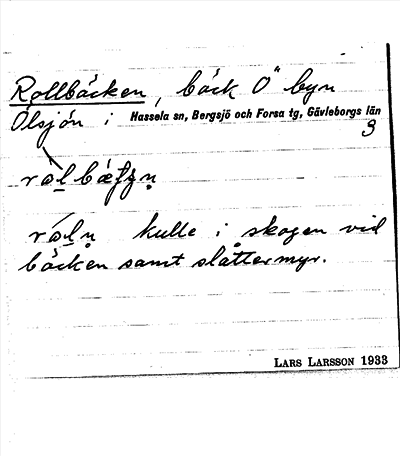 Rollbäcken, bäck O" byn
Ölsjön i Hassela sn, Bergsjö och Forsa tg, Gävleborgs län
kulle i skogen vid
bäcken samt slåttermyr.
LARS LARSSON 1933